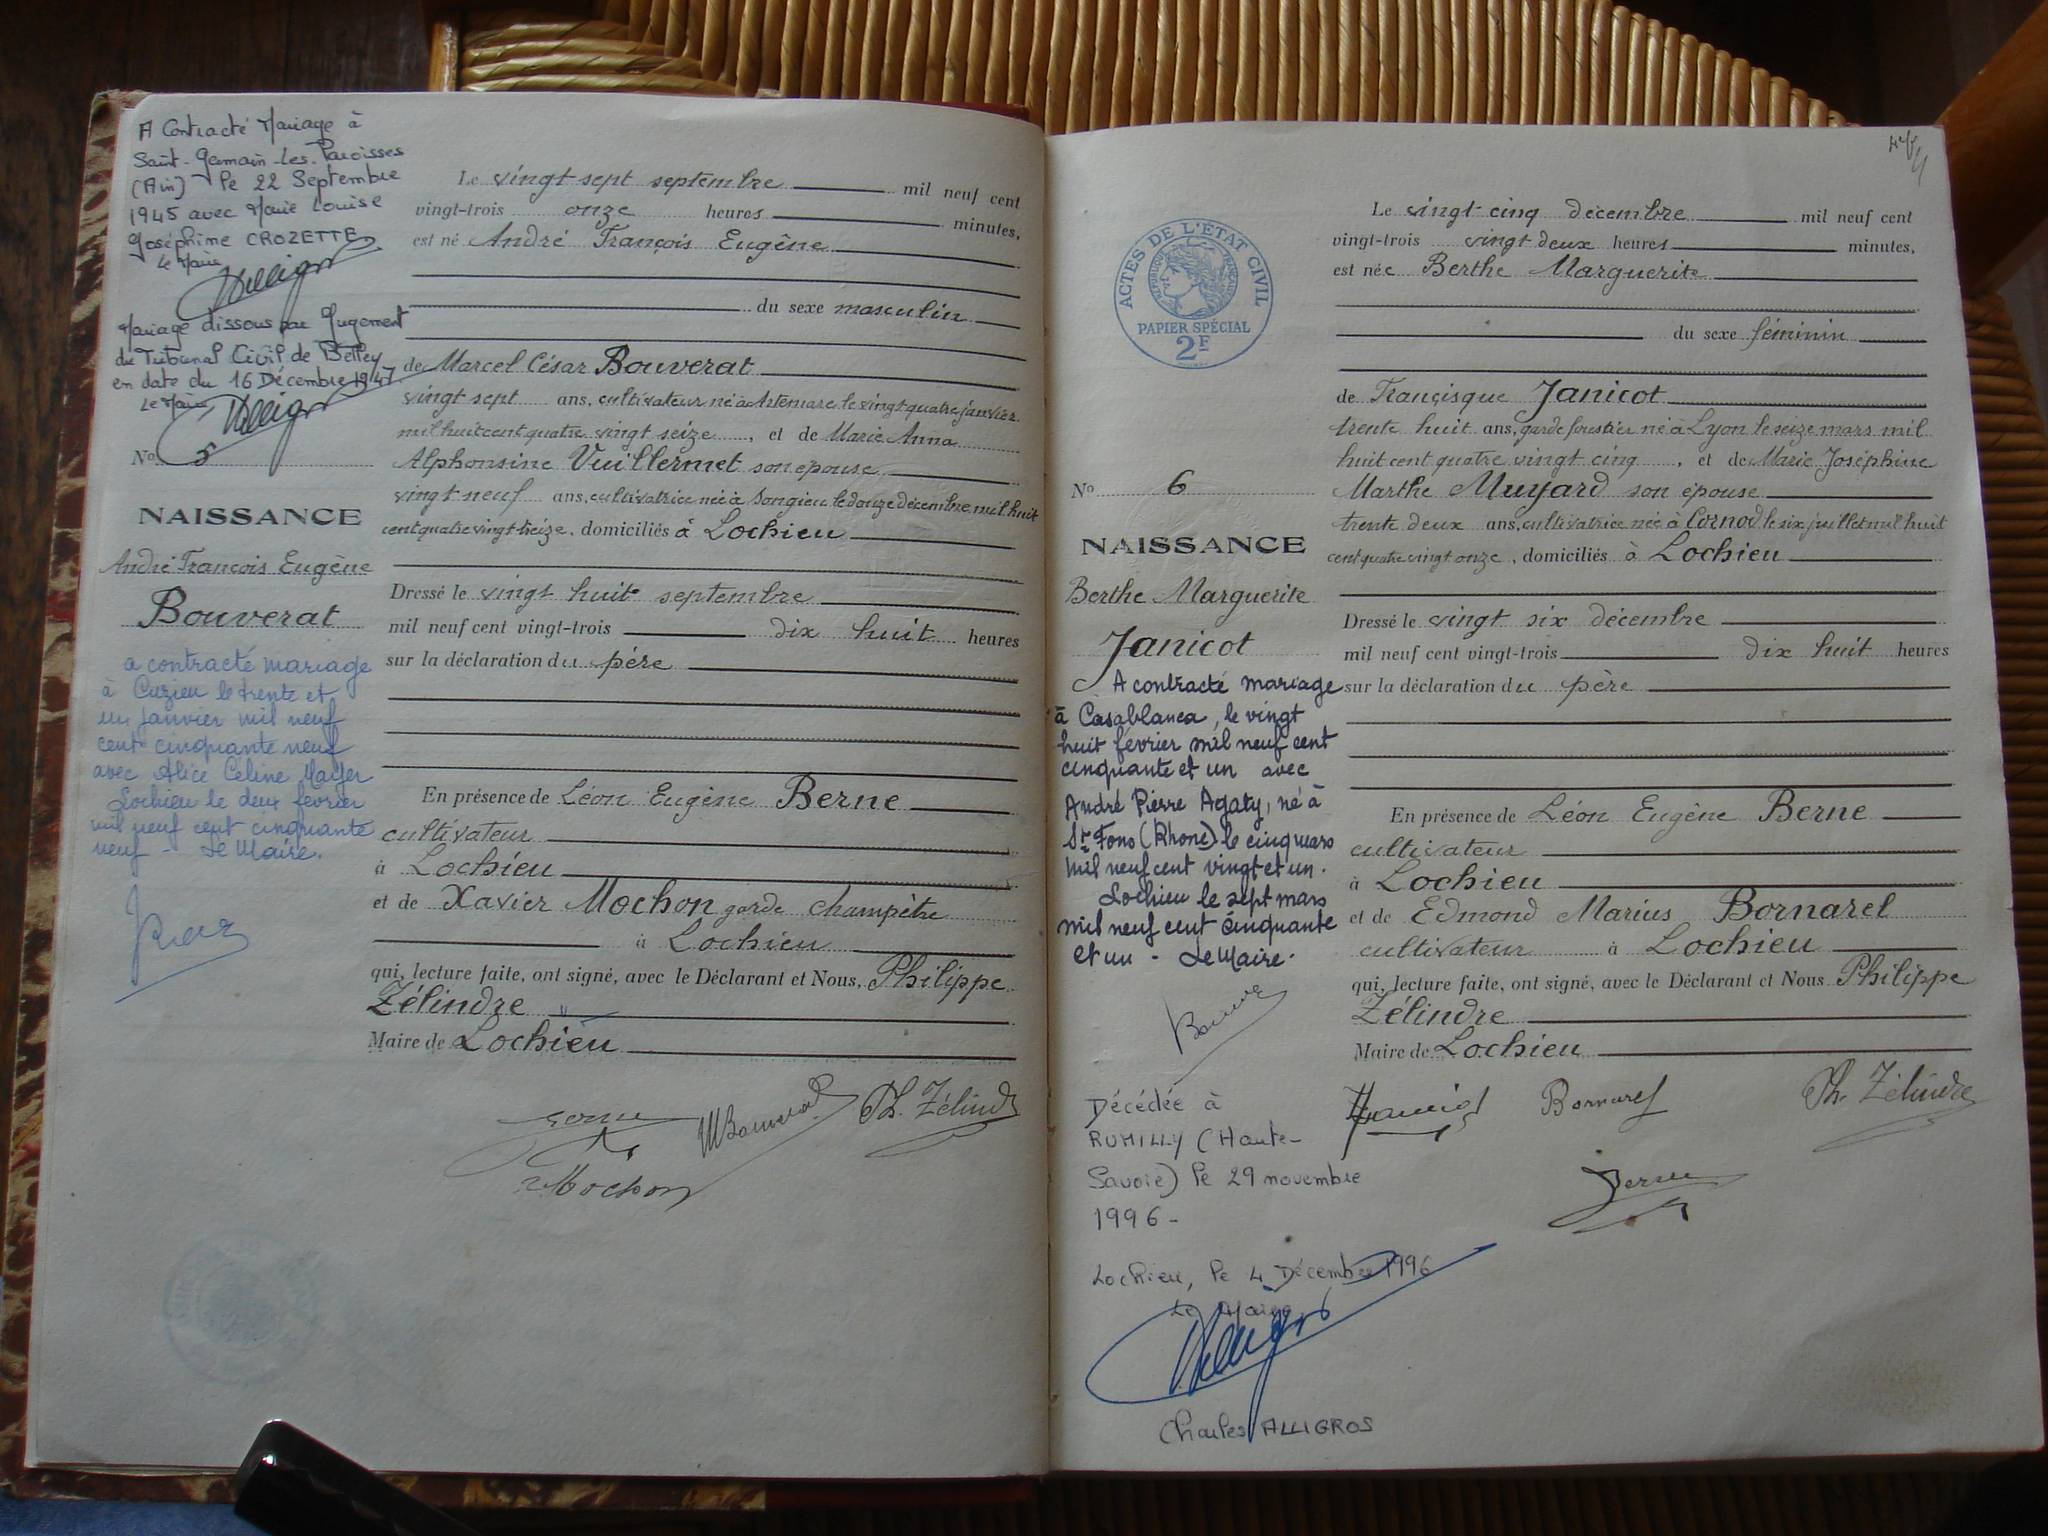 A Contracté Mariage à
Saint-Germain-Les-Paroisses
(Ain) le 22 Septembre
1945 avec Marie Louise
Joséphine CROZETTE
Le Maire
Mariage dissous par Jugement
du Tribunal Civil de Belley
en date du 16 Décembre 1947
Le Maire
No 5
NAISSANCE
André François Eugène
Bouverat
a contracté mariage
à Cuzieu le trente et
un janvier mil neuf
cent cinquante neuf
avec Alice Céline Mayer
Lochieu le deux février
mil neuf cent cinquante
neuf - Le Maire.
Le vingt sept septembre mil neuf cent
vingt-trois onze heures minutes,
est né André François Eugène
du sexe masculin
de Marcel César Bouverat
vingt sept ans, cultivateur né à Artemare le vingt quatre janvier
mil huit cent quatre vingt seize, et de Marie Anna
Alphonsine Vuillermet son épouse
vingt neuf ans, cultivatrice née à Songieu le douze décembre mil huit
cent quatre vingt treize, domiciliés à Lochieu
Dressé le vingt huit septembre
mil neuf cent vingt-trois dix huit heures
sur la déclaration du père
En présence de Léon Eugène Berne
cultivateur
à Lochieu
et de Xavier Mochon garde champêtre
à Lochieu
qui, lecture faite, ont signé, avec le Déclarant et Nous, Philippe
Zélindre
Maire de Lochieu
Berne
MBouverat
Ph. Zélindre
Mochon
ACTES DE L'ETAT CIVIL
REPUBLIQUE FRANÇAISE
PAPIER SPÉCIAL
2F
No 6
NAISSANCE
Berthe Marguerite
Janicot
A contracté mariage
à Casablanca, le vingt
huit février mil neuf cent
cinquante et un avec
André Pierre Agaty, né à
St Fons (Rhone) le cinq mars
mil neuf cent vingt et un.
Lochieu le sept mars
mil neuf cent cinquante
et un - Le Maire.
Décédée à
RUMILLY (Haute-
Savoie) le 29 novembre
1996 -
Lochieu, le 4 Décembre 1996
Le Maire,
Charles ALLIGROS
Le vingt cinq décembre mil neuf cent
vingt-trois vingt deux heures minutes,
est née Berthe Marguerite
du sexe féminin
de Françisque Janicot
trente huit ans, garde forestier né à Lyon le seize mars mil
huit cent quatre vingt cinq, et de Marie Joséphine
Marthe Muyard son épouse
trente deux ans, cultivatrice née à Cornod, le six juillet mil huit
cent quatre vingt onze, domiciliés à Lochieu
Dressé le vingt six décembre
mil neuf cent vingt-trois dix huit heures
sur la déclaration du père
En présence de Léon Eugène Berne
cultivateur
à Lochieu
et de Edmond Marius Bornarel
cultivateur à Lochieu
qui, lecture faite, ont signé, avec le Déclarant et Nous Philippe
Zélindre
Maire de Lochieu
Janicot
Bornarel
Ph. Zélindre
Berne